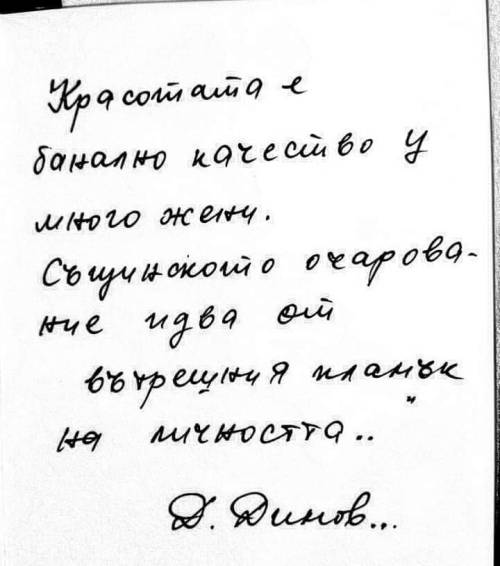 Красотата е
банално качество у
много жени.
Същинското очарова-
ние идва от
вътрешния пламък
на личността..
Д. Димов...